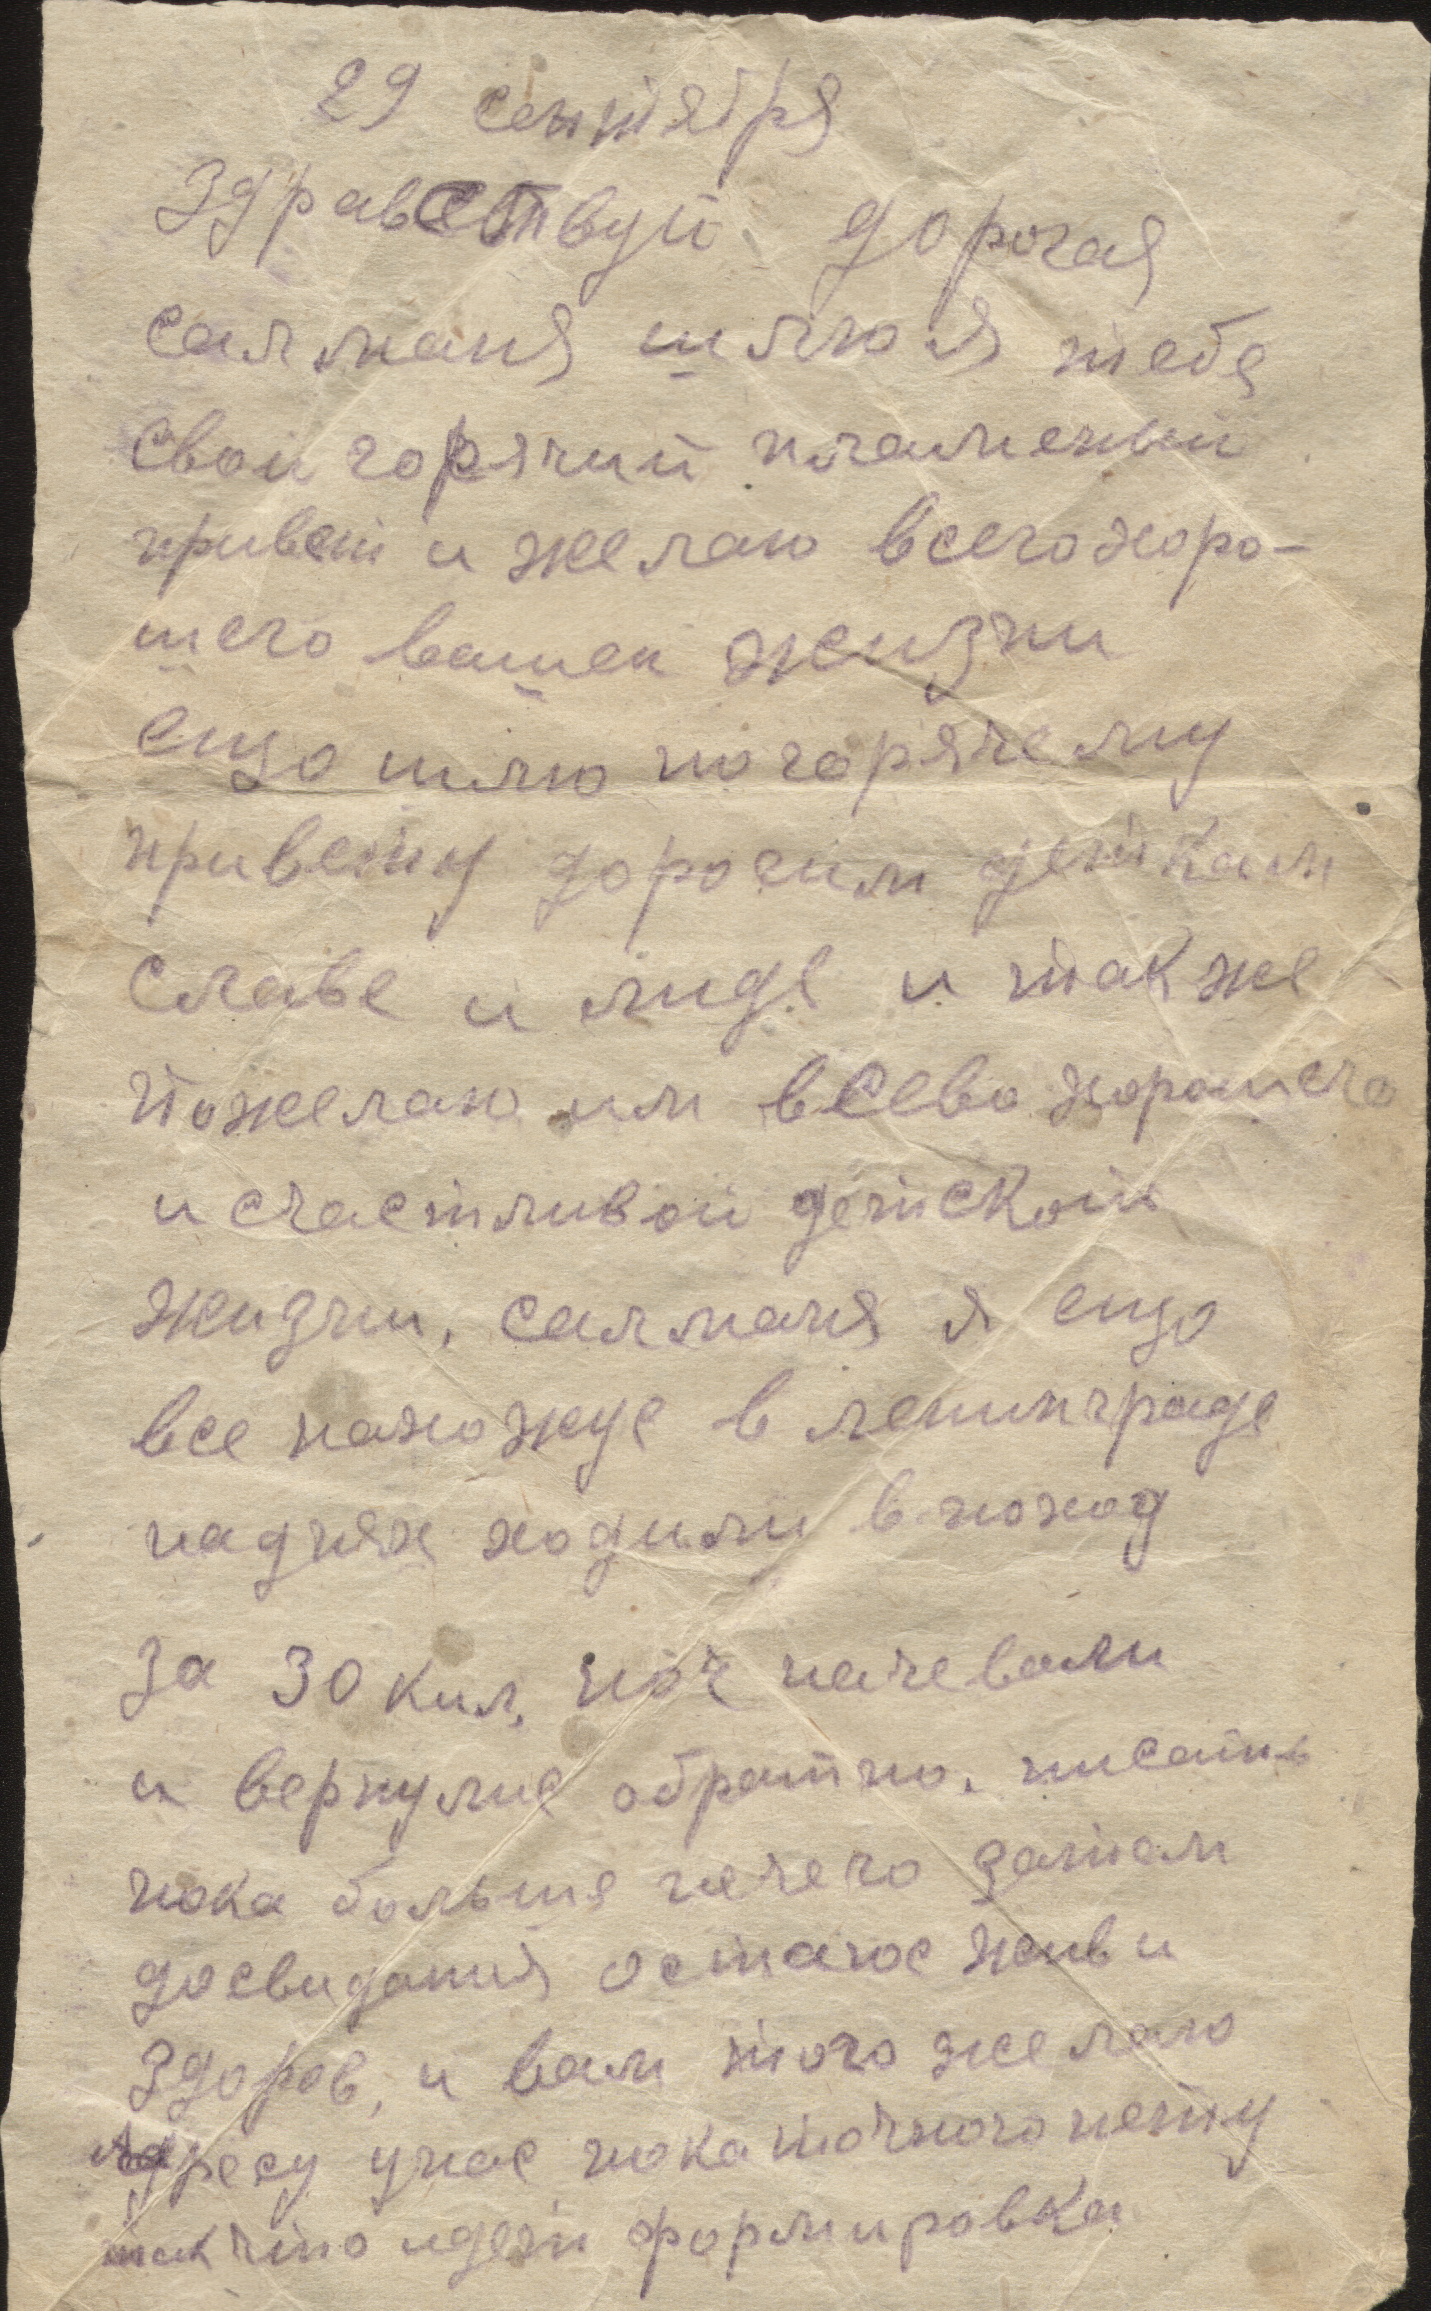 29 сентября
Здравствуй дорогая
салманя шлю я тебе
свой горячий пламеный
привет и желаю всего хоро-
шего вашей жизни
ещо шлю по горячему
привету дорогим деткам
славе и лиде и также
пожелаю им всево хорошего
и счастливой детской
жизни, салманя я ещо
все нахожус в ленинграде
на днях ходили в поход
за 30 кил, ноч начевали
и вернулис обратно, писать
пока больше нечего затем
досвидания остаюс жив и
здоров, и вам того желаю
Адресу унас пока точного нету
так что идет формировка